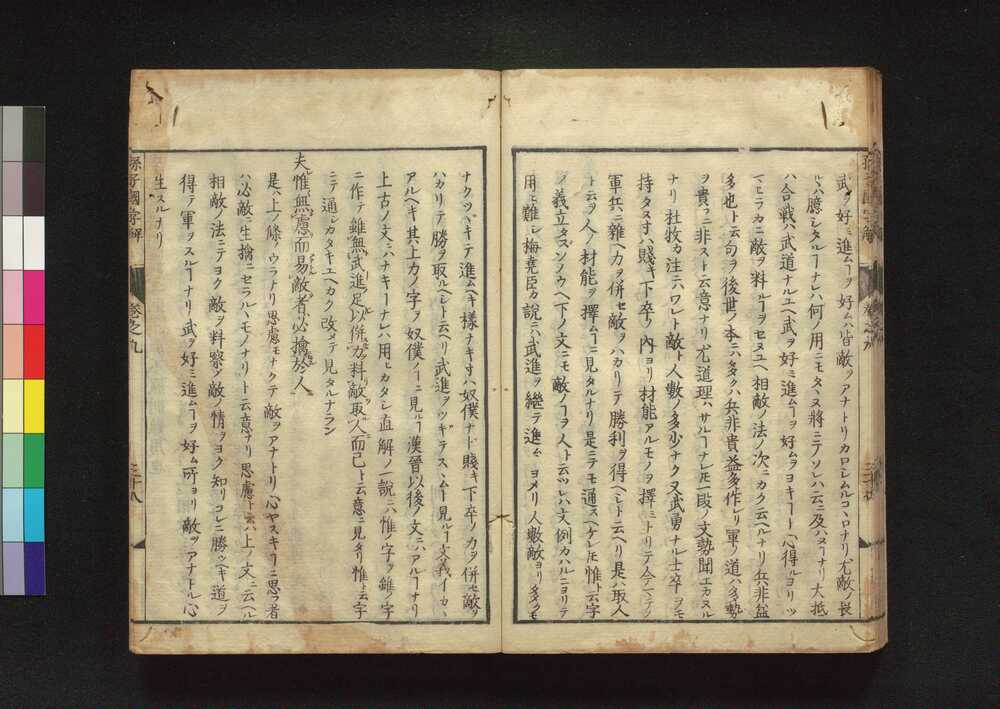 武ヲ好ミ進ムヿヲ好ムハ皆敵ヲアナトリカロシムルコヽロナリ尤敵ノ長
ルハ臆シタルヿナレハ何ノ用ニモタヽヌ將ニテソレハ云ニ及ハヌヿナリ大抵
ハ合戰ハ武道ナルユヘ武ヲ好ミ進ムヿヲ好ムヲヨキヿト心得ルヨリツ
マヒラカニ敵ヲ料ルヿヲセヌユヘ相敵ノ法ノ次ニカク云ヘルナリ兵非益
多也ト云句ヲ後世ノ本ニハ多クハ兵非貴益多作レリ軍ノ道ハ多勢
ヲ貴フニ非スト云意ナリ尤道理ハサルヿナレ𪜈一段ノ文勢聞エカヌル
ナリ杜牧カ注ニハワレト敵ト人數ノ多少ナク又武勇ナル士卒ヲモ
持タヌ寸ハ賤キ下卒ノ內ヨリ材能アルモノヲ擇ミトリテ
軍兵ニ雜ヘ力ヲ併セ敵ヲハカリテ勝利ヲ得ヘシト云ヘリ是ハ取人
ト云ヲ人ノ材能ヲ擇ムヿニ見タルナリ是ニテモ通スヘケレ𪜈惟ト云字
ノ義立タズソノウヘ下ノ文ニモ敵ノヿヲ人ト云ツレハ文例カハルニヨリテ
用ヒ難シ梅堯臣カ說ニハ武進ヲ繼テ進ムトヨメリ人數敵ヨリ多クモ
ナクツヾキテ進ムヘキ樣ナキ寸ハ奴僕ナト賤キ下卒ノ力ヲ併セ敵ヲ
ハカリテ勝ヲ取ルヘシト云ヘリ武進ヲツギテスヽムト見ルヿ文義イカヽ
アルヘキ其上力ノ字ヲ奴僕ノヿニ見ルヿ漢晉以後ノ文ニハアルヿナリ
上古ノ文ニハナキヿナレハ用ヒカタシ直解ノ一說ニハ惟ノ字ヲ雖ノ字
ニ作テ雖無武進足以併力料敵取人而已ト云意ニ見タリ惟ト云字
ニテ通シカタキユヘカク改メテ見タルナラン
夫惟無慮而易敵者必擒於人
是ハ上ノ條ノウラナリ思慮モナクテ敵ヲアナトリ心ヤスキヿニ思フ者
ハ必敵ニ生擒ニセラルヽモノナリト云意ナリ思慮ト云ハ上ノ文ニ云ヘル
相敵ノ法ニテヨク敵ヲ料察シ敵ノ情ヲヨク知リコレニ勝ツヘキ道ヲ
得テ軍ヲスルヿナリ武ヲ好ミ進ムヿヲ好ム所ヨリ敵ヲアナトル心
生スルナリ
孫子國字解
卷之九
三十八